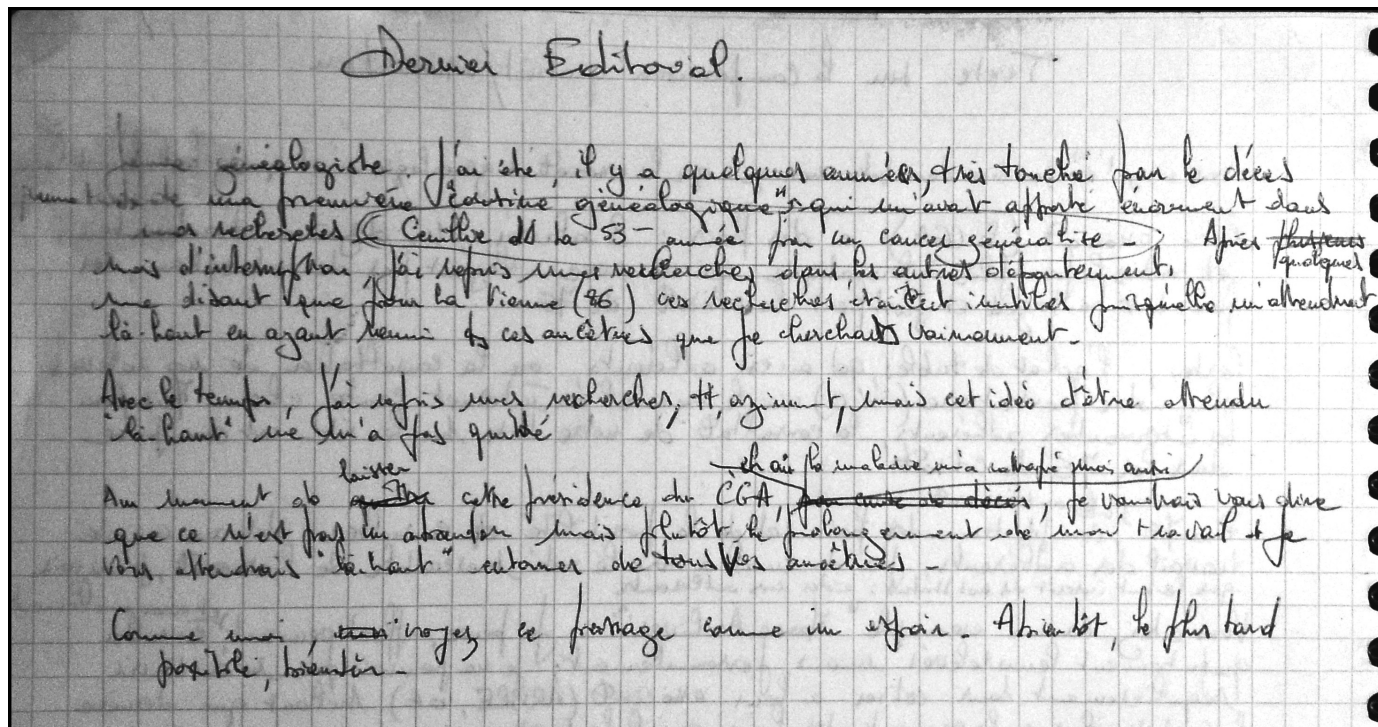 Dernier Editorial.
Jeune généalogiste, j'ai été, il y a quelques années, très touché par le décès
de ma première "cousine généalogique" qui m'avait apporté énormément dans
mes recherches ( dS la 53 année par un cancer généralisé - ) Après plusieurs quelques
mois d'interruption j'ai repris mes recherches dans les autres département,
me disant que pour la Vienne (86) ces recherches étaient inutiles puisqu'elle m'attendrait
là-haut en ayant réuni ts ces ancêtres que je cherchais vainement.
Avec le temps, j'ai repris mes recherches, mais cet idée d'être attendu
"là-haut" ne m'a pas quitté
laisser eh oui la maladie m'a rattrapé moi aussi
Au moment de cette présidence du CGA, pour cause de décès, je voudrais vous dire
que ce n'est pas un abandon mais plutôt le prolongement de mon travail et je
vous attendrais "là-haut" entourer de tous Vos ancêtres -
Comme moi, voyez ce passage comme un espoir - A bientôt, le plus tard
possible, bientôt -